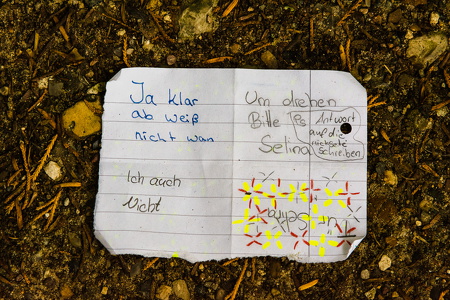 Ja klar
ab weiß
nicht wan
Ich auch
Nicht
Um drehen
Bitte
Selina
Antwort
auf die
rückseite
Schreiben
Für Selina